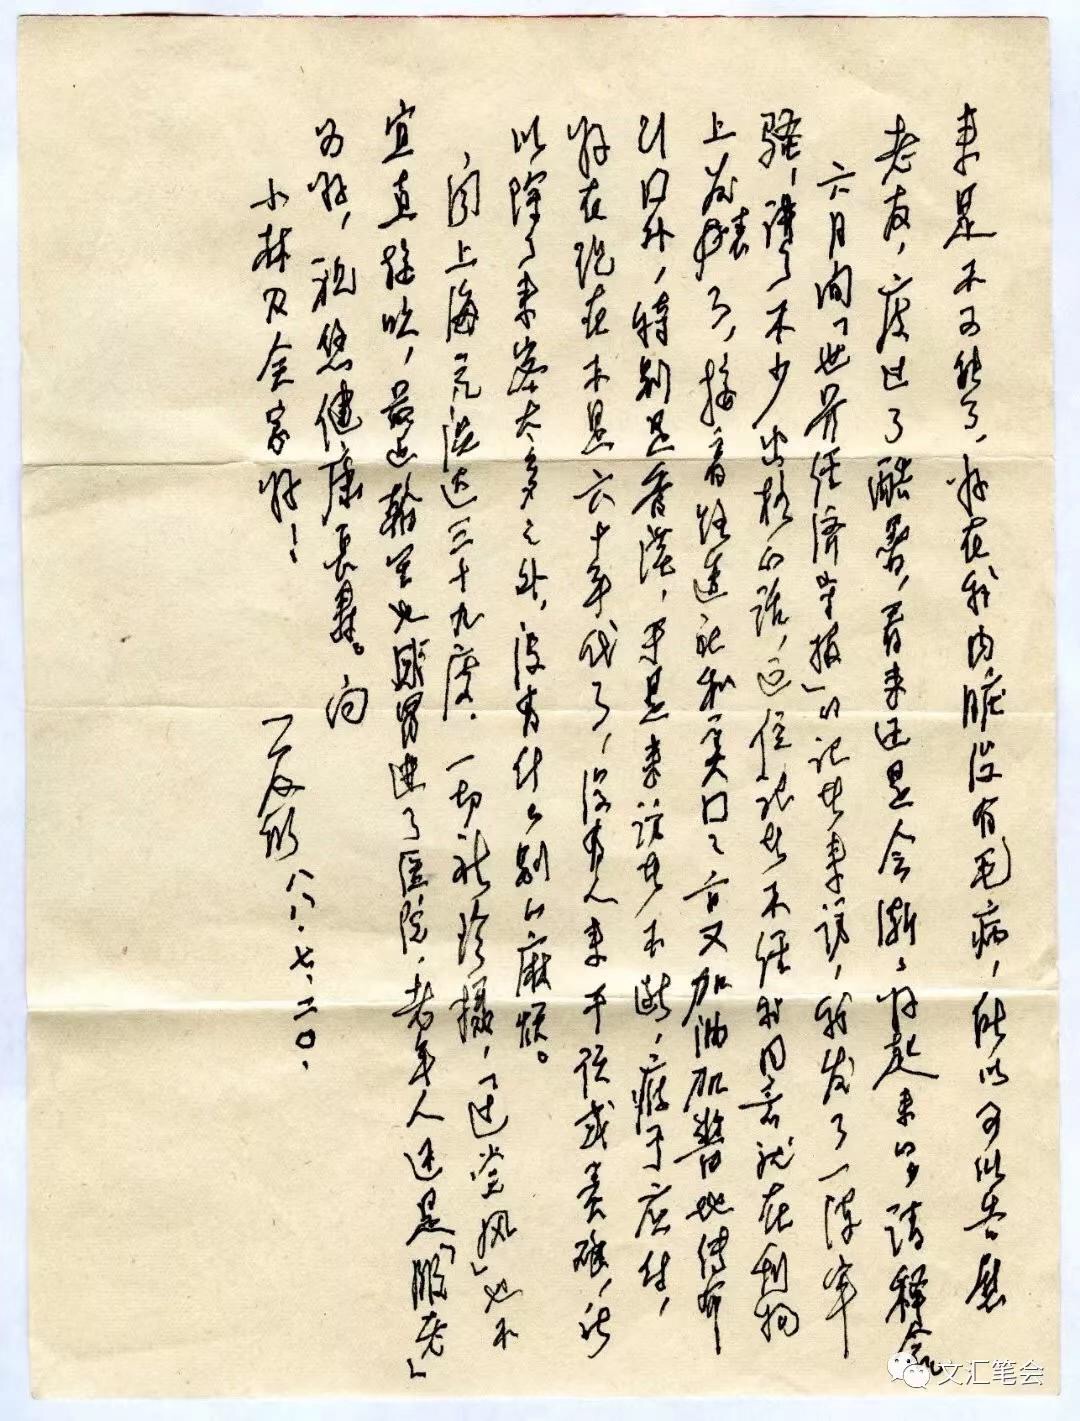 来是不可能了，好在我内脏没有毛病，所以可以告慰
老友，度过了酷暑，看来还是会渐渐好起来的，请释念
六月间「世界经济导报」的记者来访，我发了一阵牢
骚，讲了不少出格的话，这位记者不经我同意就在刊物
上发表了，接着铅造记和吴口之言又加油加酱地传布
到国外，特别是香港，于是来访者不断，疲于应付，
好在现在不是六十年代了，没有人来干预或责难，所
以除了来客太多之外，没有什么别的麻烦。
闻上海气温达三十九度，一切祈珍摄，「过堂风」也不
宜直接吹，最近翰笙也感冒进了医院，老年人还是「服老」
为好，祝您健康长寿。向
小林及全家好！
八八、七、二〇、
文汇笔会